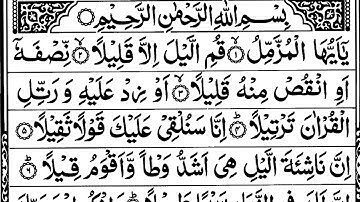 بِسْمِ اللّٰهِ الرَّحْمٰنِ الرَّحِيْمِ
يٰۤاَيُّهَا الْمُزَّمِّلُ ۙ﴿۱﴾ قُمِ الَّيْلَ اِلَّا قَلِيْلًا ۙ﴿۲﴾ نِّصْفَهٗۤ
اَوِ انْقُصْ مِنْهُ قَلِيْلًا ۙ﴿۳﴾ اَوْ زِدْ عَلَيْهِ وَ رَتِّلِ
الْقُرْاٰنَ تَرْتِيْلًا ؕ﴿۴﴾ اِنَّا سَنُلْقِيْ عَلَيْكَ قَوْلًا ثَقِيْلًا ﴿۵﴾
اِنَّ نَاشِئَةَ الَّيْلِ هِيَ اَشَدُّ وَطْاً وَّاَقْوَمُ قِيْلًا ؕ﴿۶﴾